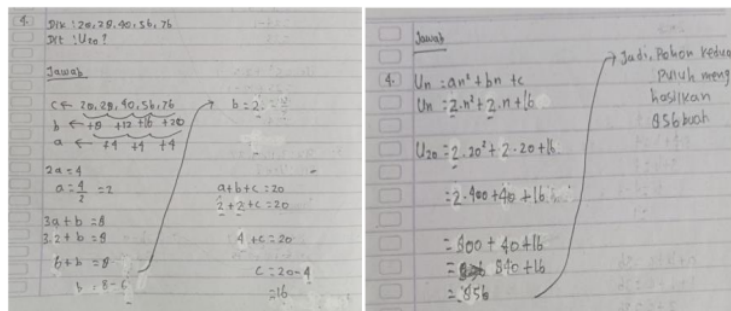 4. Dik : 20, 28, 40, 56, 76
Dit : U20 ?
Jawab
c ← 20, 28, 40, 56, 76
b ← +8 +12 +16 +20
a ← +4 +4 +4
2a = 4
a = 4/2 = 2
3a + b = 8
3.2 + b = 8
6 + b = 8
b = 8 - 6
b = 2
a + b + c = 20
2 + 2 + c = 20
4 + c = 20
c = 20 - 4
= 16
Jawab
4. Un = an² + bn + c
Un = 2.n² + 2.n + 16
U20 = 2.20² + 2.20 + 16
= 2.400 + 40 + 16
= 800 + 40 + 16
= 840 + 16
= 856
→ Jadi, Pohon kedua
puluh meng
hasilkan
856 buah